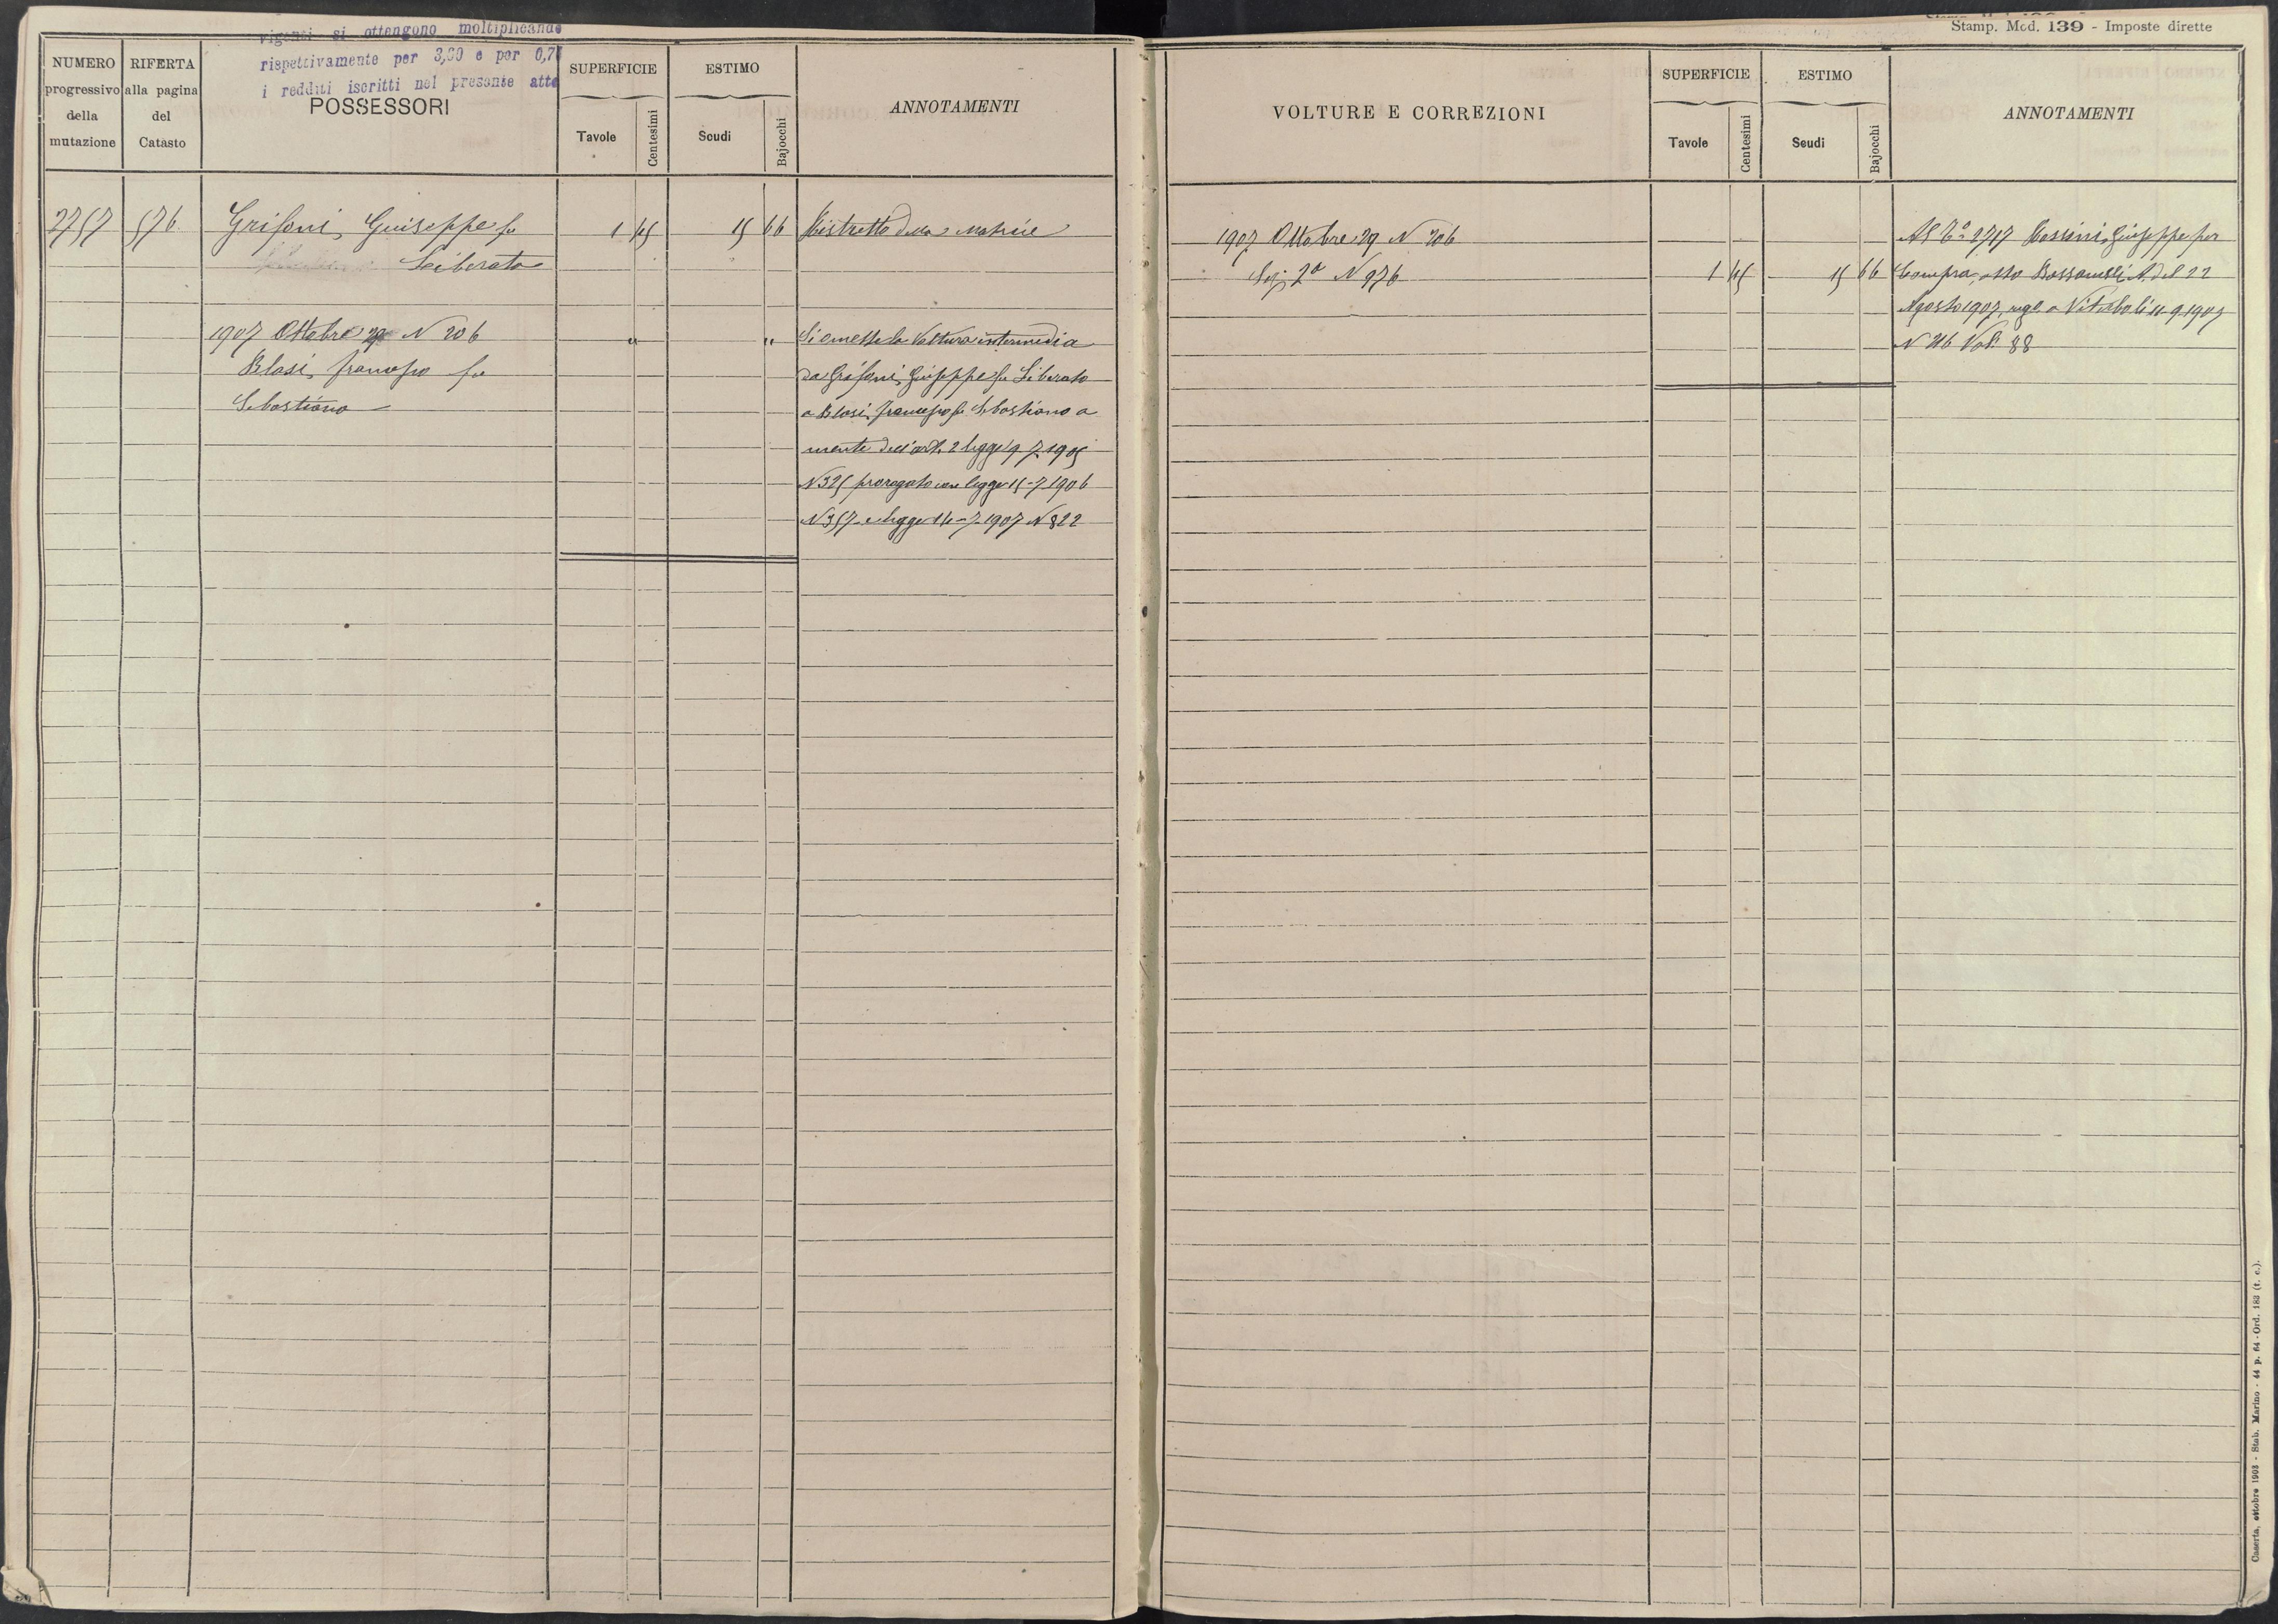 vigenti si ottengono moltiplicando
rispettivamente per 3,00 e per 0,7
i redditi iscritti nel presente atto
NUMERO progressivo della mutazione
RIFERTA alla pagina del Catasto
POSSESSORI
SUPERFICIE
Tavole
Centesimi
ESTIMO
Scudi
Bajocchi
ANNOTAMENTI
2757 576 Grifoni Giuseppe fu 1 45 15 66 Ristretto della Matrice
Liberato
1907 Ottobre 29 N 206 " " Si omette la Voltura intermedia
Blasi Francesco fu da Grifoni Giuseppe fu Liberato
Sebastiano a Blasi Francesco fu Sebastiano a
mente dell'art. 2 legge 9-7-1905
N 325 prorogato con legge 15-7-1906
N 357 e legge 14-7-1907 N 822
Stamp. Mod. 139 - Imposte dirette
VOLTURE E CORREZIONI
SUPERFICIE
Tavole
Centesimi
ESTIMO
Scudi
Bajocchi
ANNOTAMENTI
1907 Ottobre 29 N 206 Al 2717 Giuseppe per
Sez 2a N 976 1 45 15 66 Compra, atto del 22
Agosto 1907, a Viterbo li 11-9-1907
N 216 Vol. 88
Caserta, ottobre 1903 - Stab. Marino - 44 p. 64 - Ord. 183 (t. c.).